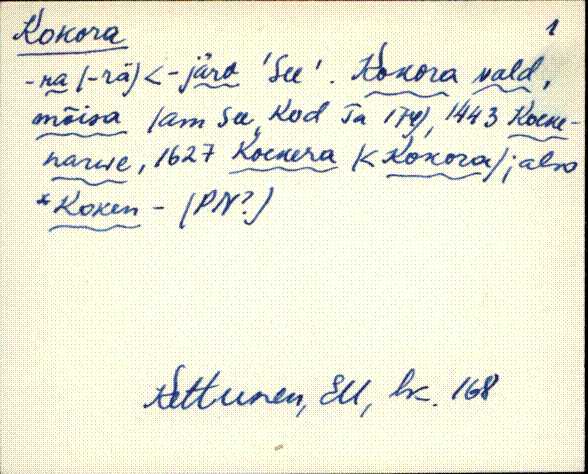 Kokora 1
-ra (-rä) < -järv 'See'. Kokora vald,
mõisa (am See, Kod Ta 174), 1443 Kocke-
narwe, 1627 Kockera (< Kokora); also
*Koken - (PN?)
Kettunen, EU, lk. 168